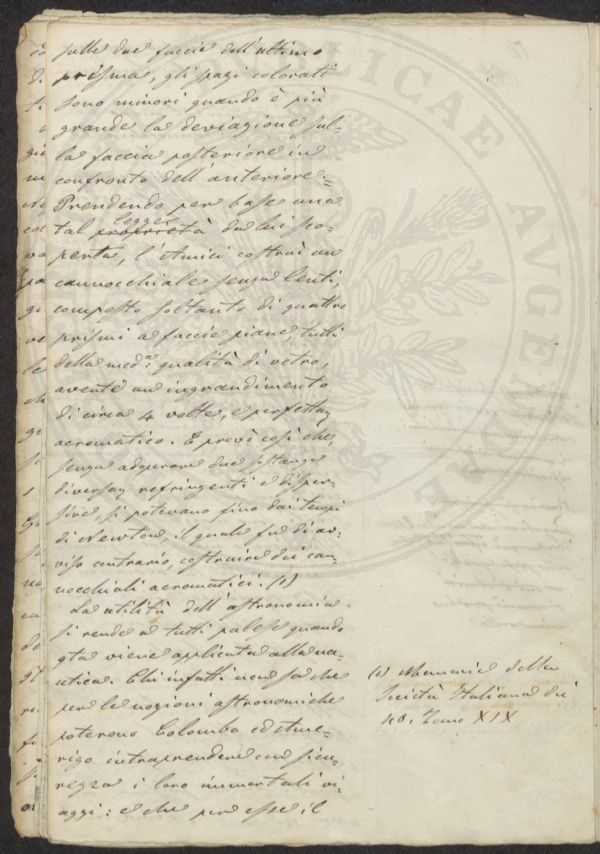 sulle due faccie dell'ultimo
prisma, gli spazi colorati
sono minori quando è più
grande la deviazione sul-
la faccia posteriore in
confronto dell'anteriore.=
Prendendo per base una
legge
tal proprietà da lui sco-
perta, l'Amici costruì un
cannocchiale senza lenti,
composto soltanto di quattro
prismi a faccie piane, tutti
della med.a qualità di vetro,
avente un ingrandimento
di circa 4 volte, e perfettam
acromatico. E provò così che,
senza adoperare due sostanze
diversam refringenti e disper-
sive, si potevano fino dai tempi
di Newton, il quale fu di av-
viso contrario, costruire dei can-
nocchiali acromatici. (1)
La utilità dell'astronomia
si rende a tutti palese quando
qta viene applicata alla nau-
tica. Chi infatti non sa che
per le nozioni astronomiche
poterono Colombo ed Ame-
rigo intraprendere con sicu-
rezza i loro immortali vi-
aggi: e che per esse il
(1) Memorie della
Società Italiana dei
40. Tomo XIX
PUBLICAE AVGENDAE